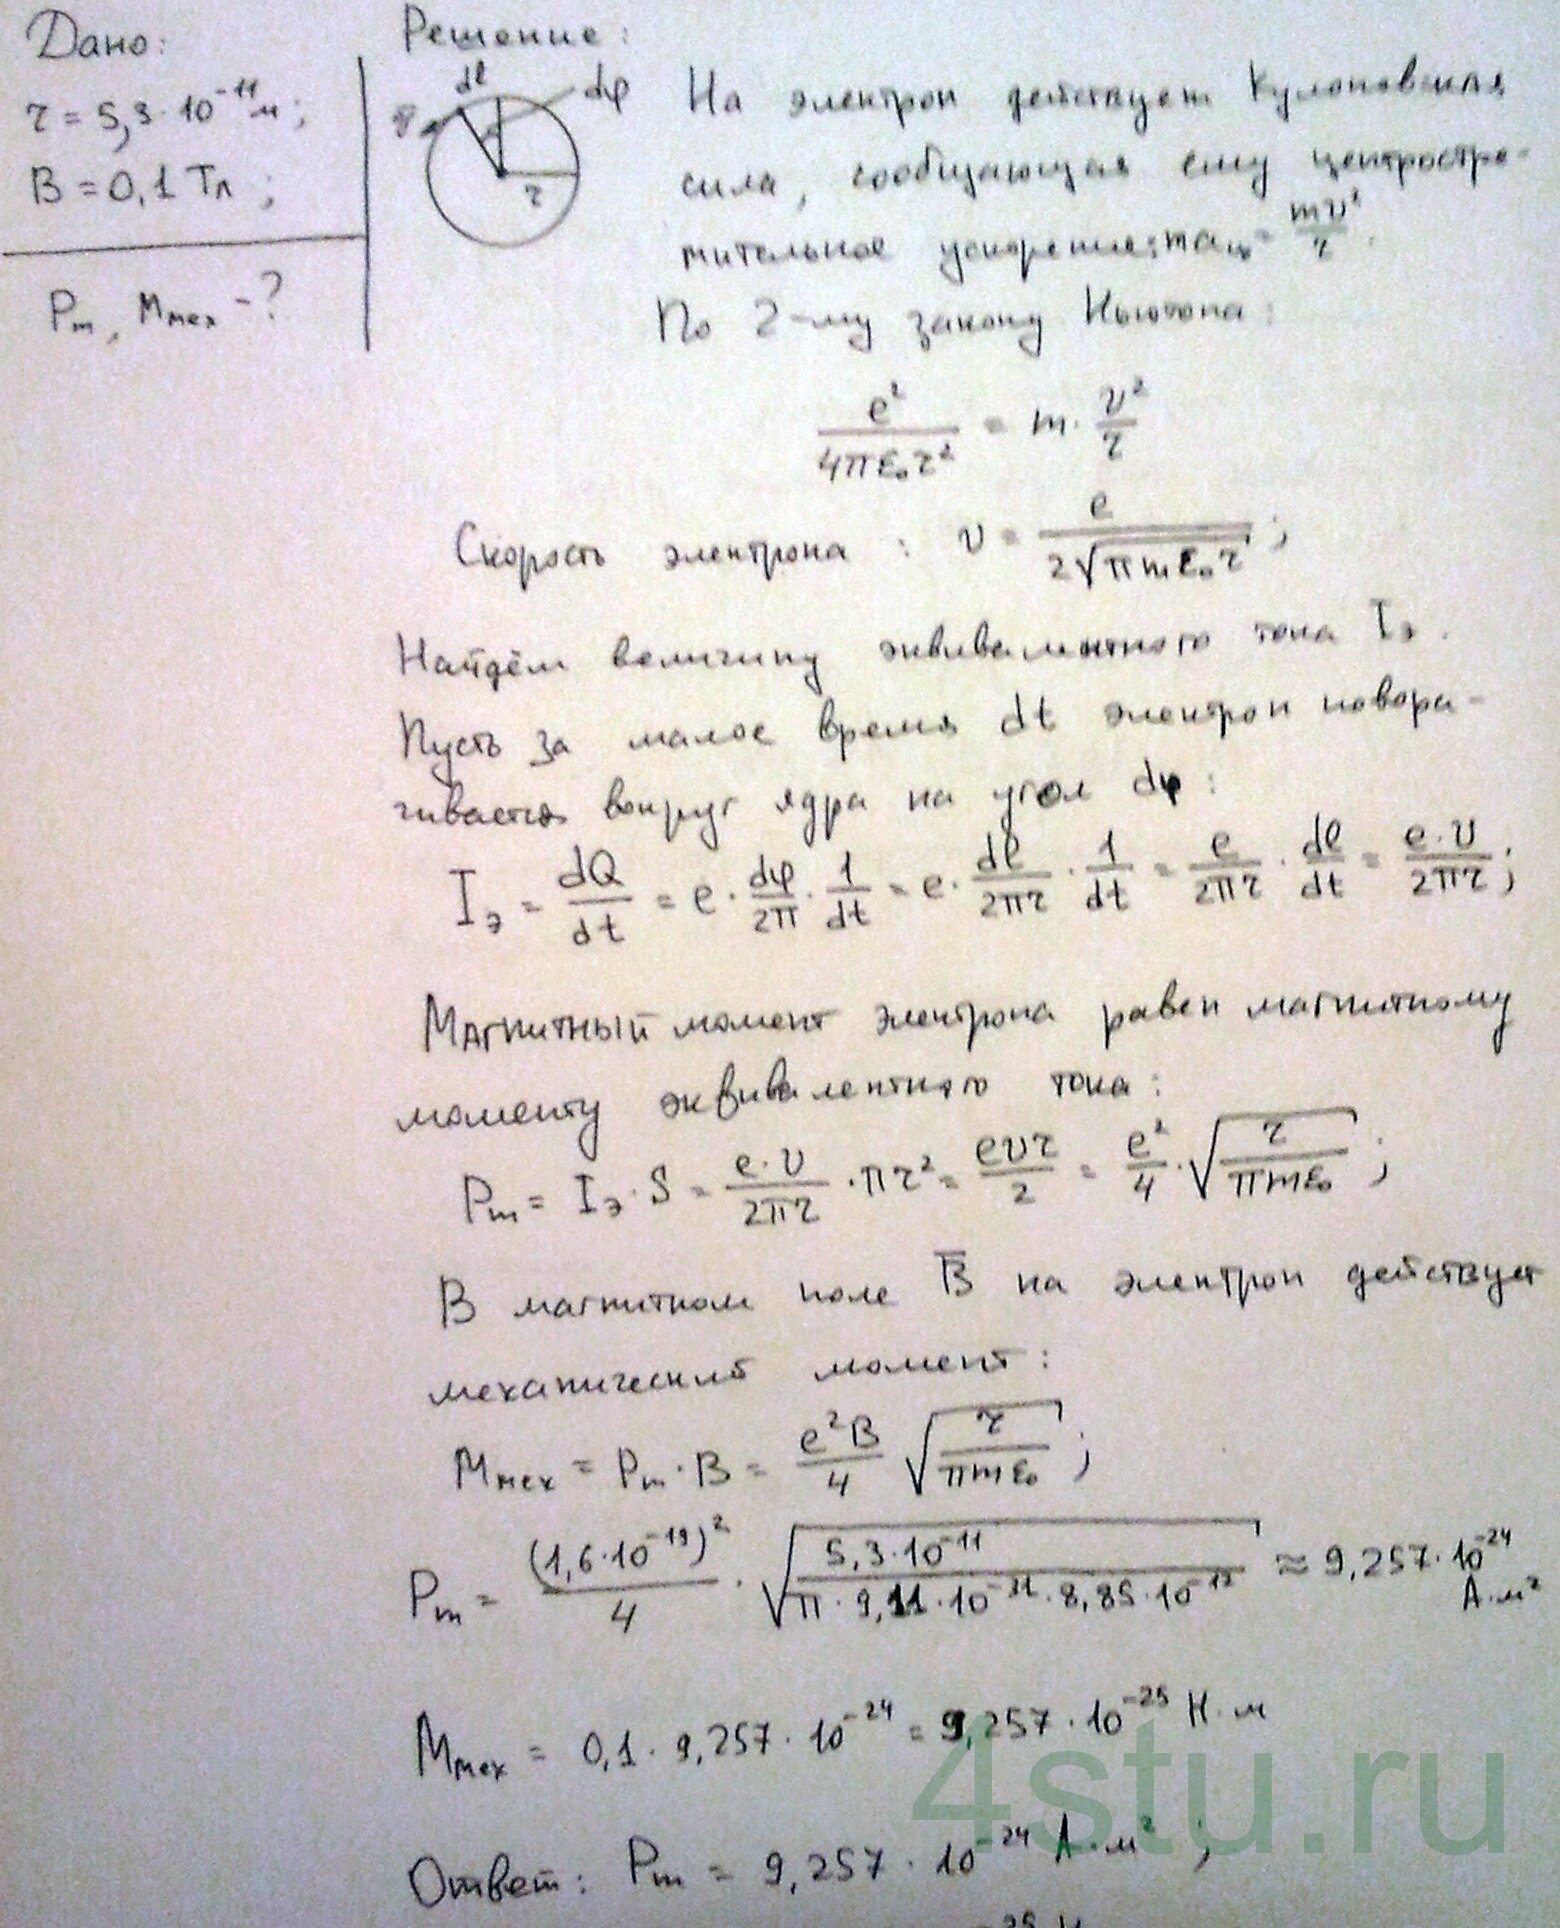 Дано:
r = 5,3·10⁻¹¹ м;
B = 0,1 Тл;
Pm, Mмех - ?
Решение:
dl
dφ
v̄
r
На электрон действует Кулоновская
сила, сообщающая ему центростре-
мительное ускорение: maц = mv²/r.
По 2-му закону Ньютона:
e²/(4πε₀r²) = m · v²/r
Скорость электрона: v = e/(2√(πmε₀r));
Найдём величину эквивалентного тока Iэ.
Пусть за малое время dt электрон повора-
чивается вокруг ядра на угол dφ:
Iэ = dQ/dt = e · dφ/2π · 1/dt = e · dl/2πr · 1/dt = e/2πr · dl/dt = e·v/2πr;
Магнитный момент электрона равен магнитному
моменту эквивалентного тока:
Pm = Iэ · S = e·v/2πr · πr² = evr/2 = e²/4 · √(r/(πmε₀));
В магнитном поле B̄ на электрон действует
механический момент:
Mмех = Pm · B = e²B/4 √(r/(πmε₀));
Pm = (1,6·10⁻¹⁹)²/4 · √(5,3·10⁻¹¹/(π·9,11·10⁻³¹·8,85·10⁻¹²)) ≈ 9,257·10⁻²⁴ А·м²
Mмех = 0,1 · 9,257 · 10⁻²⁴ = 9,257 · 10⁻²⁵ Н·м
4stu.ru
Ответ: Pm = 9,257 · 10⁻²⁴ А·м²;